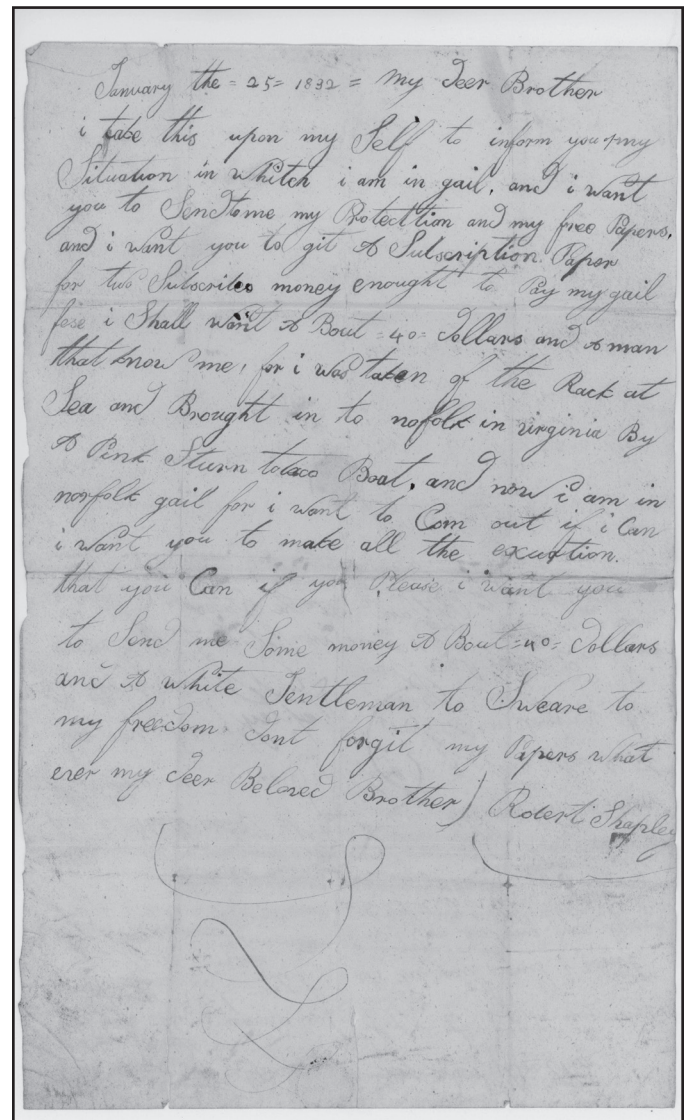 January the = 25 = 1832 = my Deer Brother
i take this upon my Self to inform you of my
Situation in whitch i am in gail, and i want
you to Send to me my Protecttion and my free Papers,
and i want you to git A Subscription Paper
for two Subscribe money enought to Pay my gail
fese i Shall want A Bout = 40 = Dollars and A man
that know me, for i was taken of the Rack at
Sea and Brought in to nofolk in virginia By
A Pink Sturn Boat, and now i am in
norfolk gail for i want to Com out if i Can
i want you to make all the
that you Can if you Please i want you
to Send me Some money A Bout = 40 = Dollars
and A white Gentleman to Sweare to
my freedom Dont forgit my Papers what
ever my Deer Beloved Brother) Robert Shapley